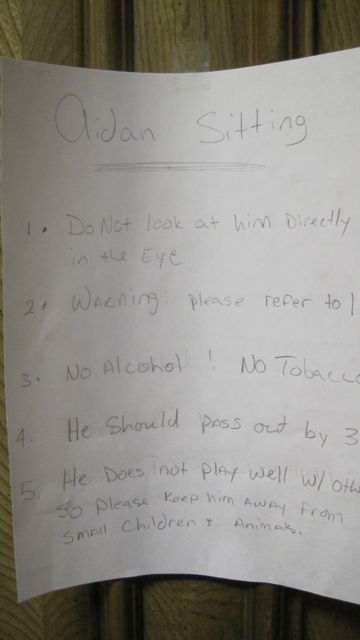 Aidan Sitting
1. Do Not look at him Directly
in the Eye
2. Warning: please refer to 1
3. No Alcohol! No Tobacco
4. He Should pass out by 3
5. He Does not Play well w/ oth
So Please Keep him Away From
Small Children & Animals.